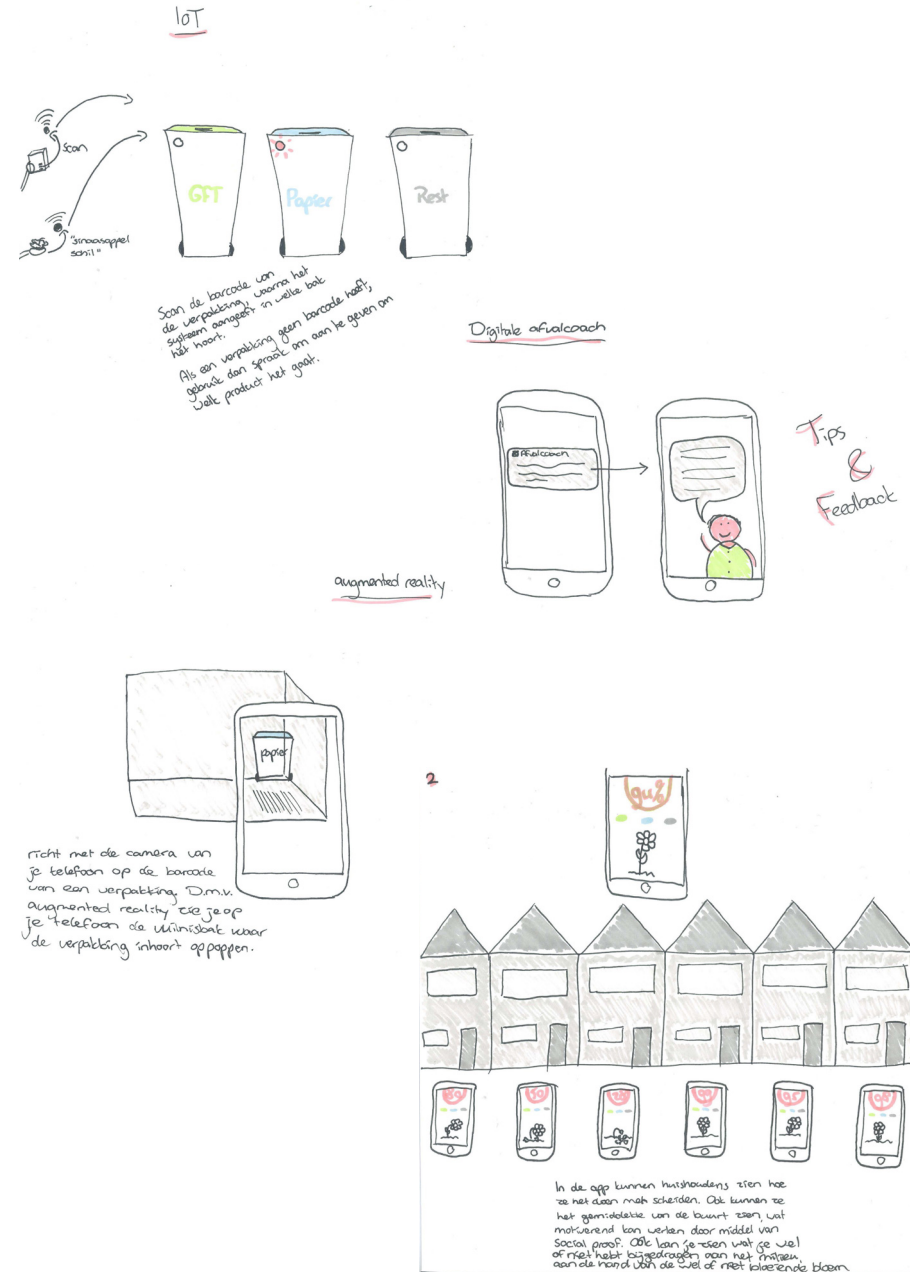 IoT
Scan
"sinaasappel
schil"
GFT
Papier
Rest
Scan de barcode van
de verpakking, waarna het
systeem aangeeft in welke bak
het hoort.
Als een verpakking geen barcode heeft,
gebruik dan spraak om aan te geven om
welk product het gaat.
Digitale afvalcoach
Afvalcoach
Tips
&
Feedback
augmented reality
papier
richt met de camera van
je telefoon op de barcode
van een verpakking. D.m.v.
augmented reality zie je op
je telefoon de vuilnisbak waar
de verpakking inhoort oppoppen.
2
In de app kunnen huishoudens zien hoe
ze het doen met scheiden. Ook kunnen ze
het gemiddelde van de buurt zien, wat
motiverend kan werken door middel van
social proof. Ook kan je zien wat je wel
of niet hebt bijgedragen aan het milieu,
aan de hand van de wel of niet bloeiende bloem